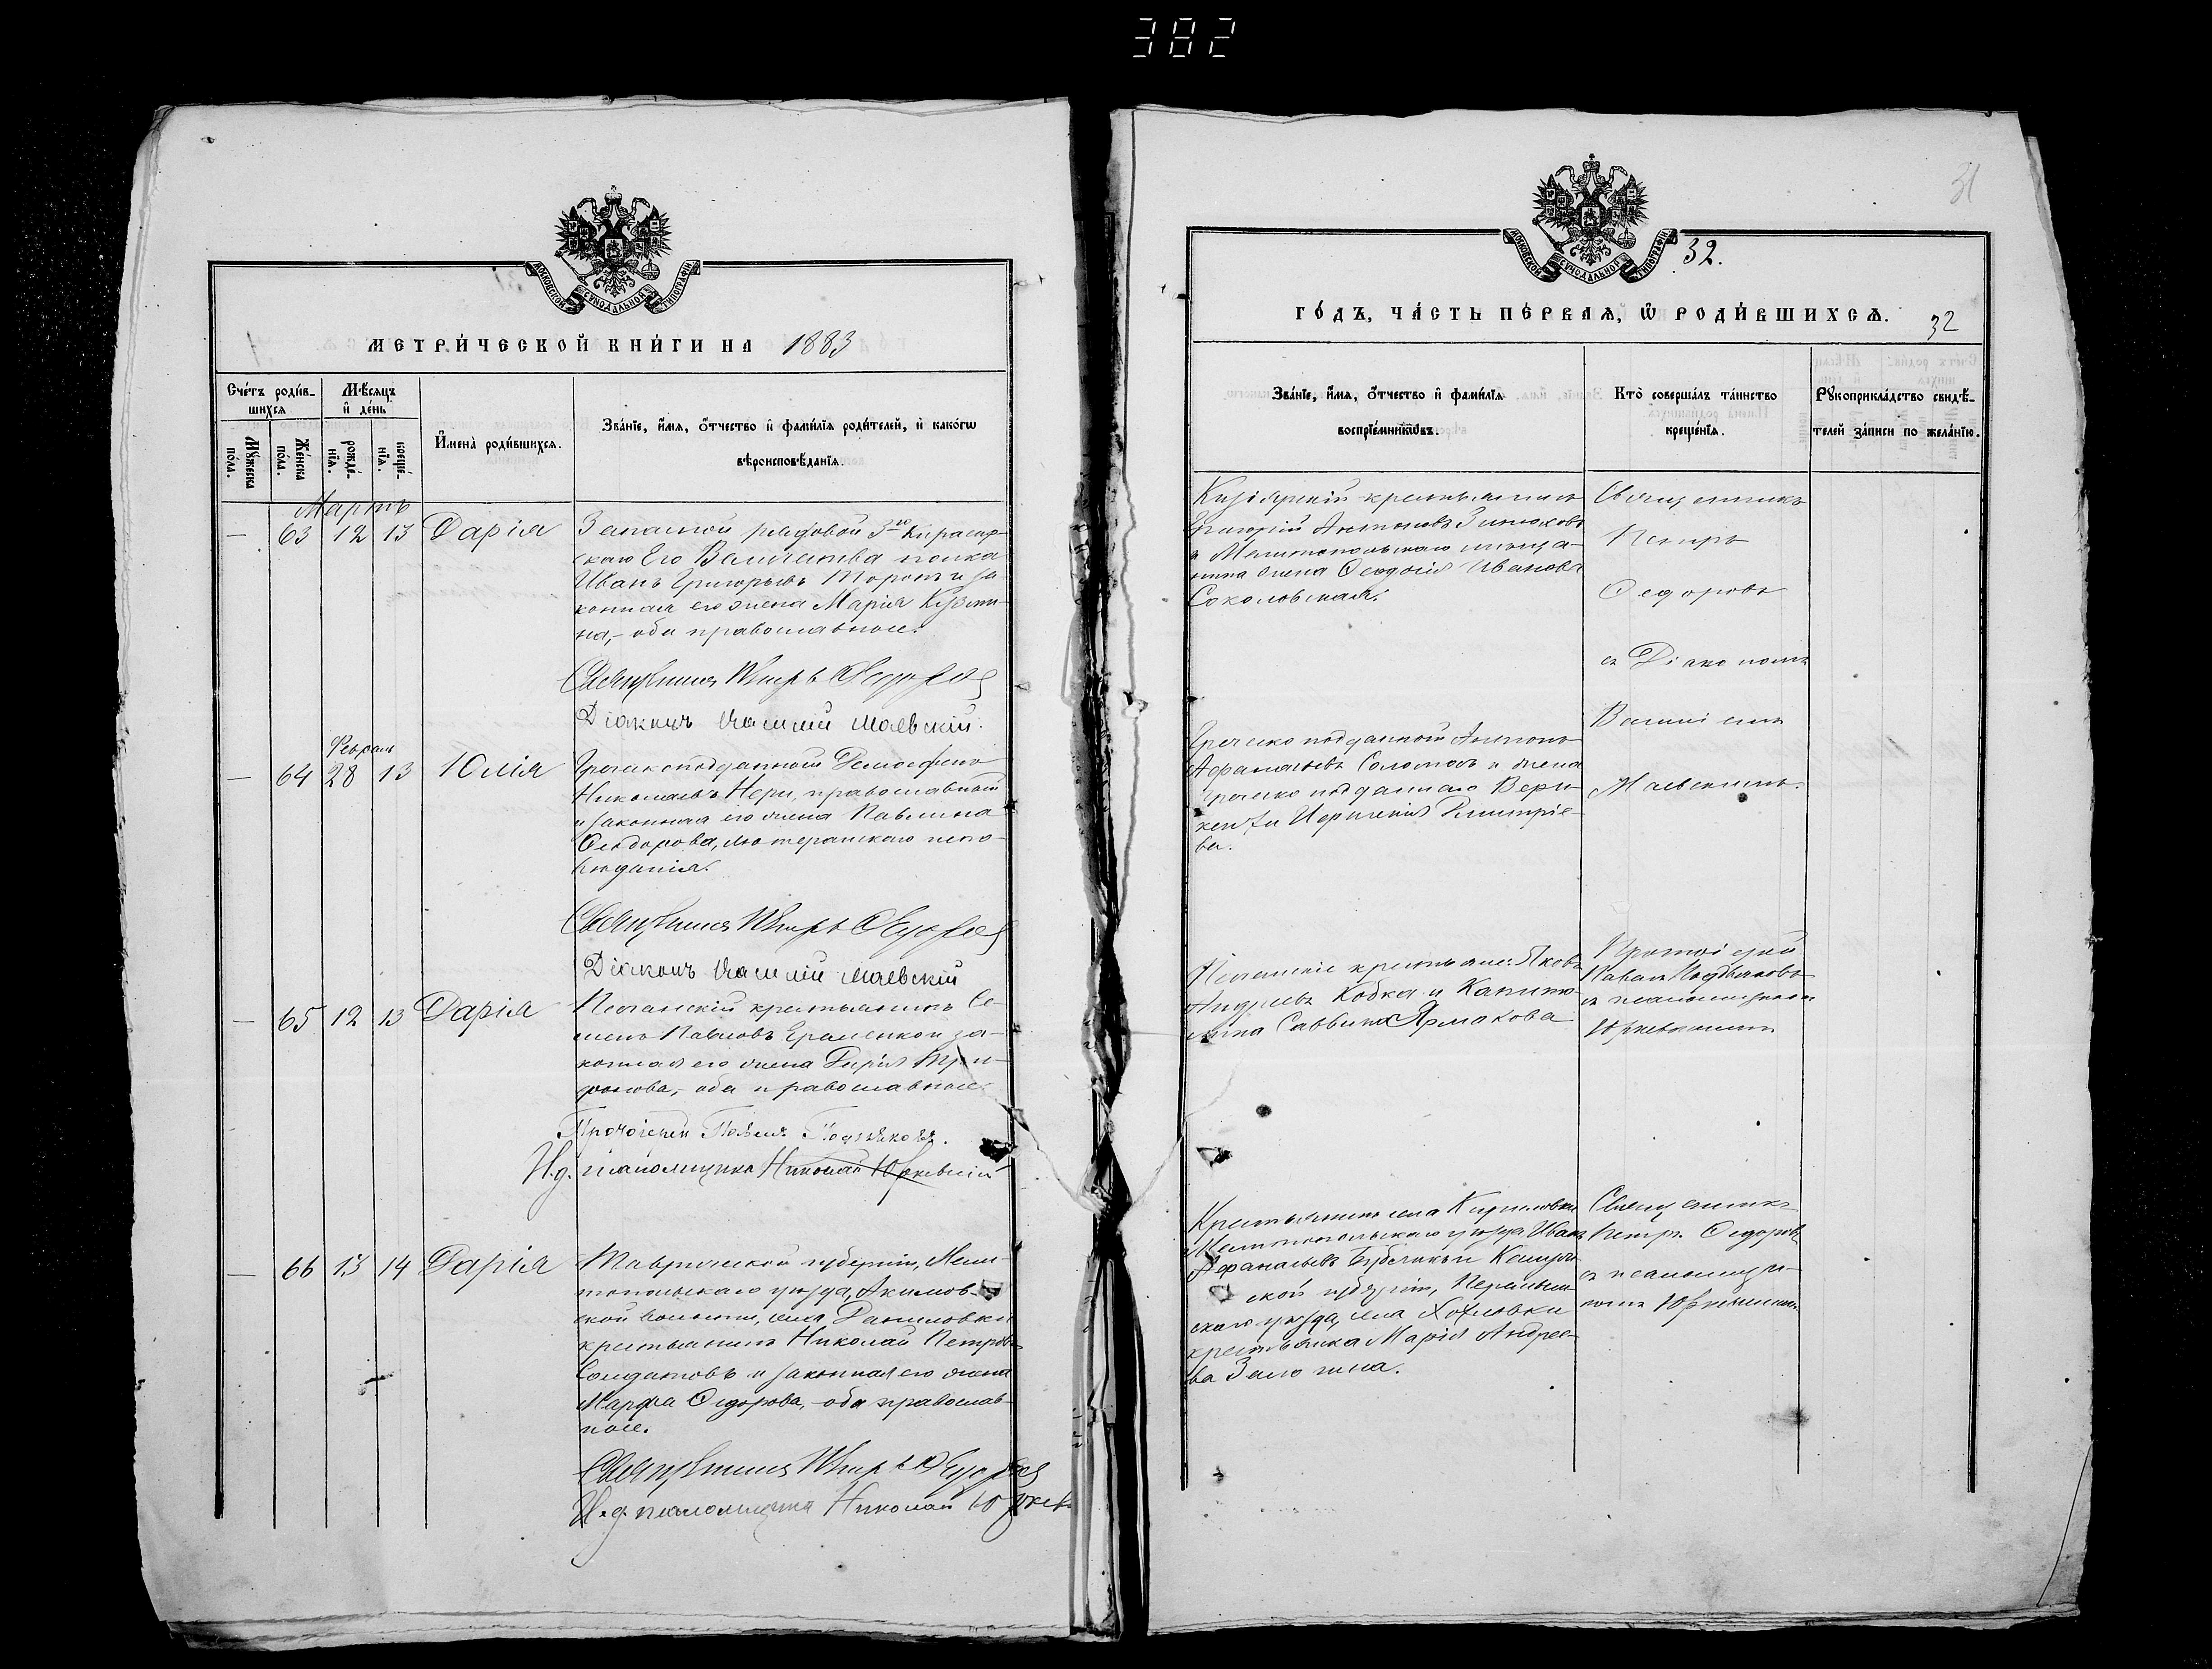 382
МОСКОВСКОЙ СѴНОДАЛЬНОЙ ТИПОГРАФІИ
МЕТРИ́ЧЕСКОЙ КНИ́ГИ НА 1883
Сче́тъ роди́в-
шихся
Мѣ́сяцъ
и҆ де́нь
Мꙋ́жеска
по́ла.
Же́нска
по́ла.
рожде́-
нїя.
креще́-
нїя.
И҆мена̀ роди́вшихся.
Зва́нїе, и҆́мя, ѻ҆́тчество и҆ фами́лїя роди́телей, и҆ како́гѡ
вѣроисповѣ́данїя.
Мартъ
— 63 12 13 Дарія
Запасной рядовой 3го Кирасир-
скаго Его Величества полка
Иванъ Григорьевъ и за-
конная его жена Марія Кузьми-
на, – оба православные.
Священникъ Петръ Ѳедоровъ
Діаконъ Василій Маевскій.
Февраля
— 64 28 13 Юлія
Греческоподданный
Николаевъ Нери, православный
и законная его жена Павлина
Ѳеодорова, лютеранскаго испо-
вѣданія.
Священникъ Петръ Ѳедоровъ
Діаконъ Василій Маевскій
— 65 12 13 Дарія
крестьянинъ Се-
менъ Павловъ Ераменко и за-
конная его жена Дарія Три-
фонова, – оба православные.
Протоіерей Павелъ Поддьяковъ.
И.д. псаломщика Николай Юркевскій
— 66 13 14 Дарія
Таврической губерніи, Мели-
топольскаго уѣзда, Акимов-
ской волости, села Даниловки
крестьянинъ Николай Петровъ
Солдатовъ и законная его жена
Марфа Ѳедорова, – оба православ-
ные.
Священникъ Петръ Ѳедоровъ
И.д. псаломщика Николай Юркев
31
МОСКОВСКОЙ СѴНОДАЛЬНОЙ ТИПОГРАФІИ
32.
ГО́ДЪ, ЧА́СТЬ ПЕ́РВАЯ, Ѡ҆ РОДИ́ВШИХСЯ.
32
Зва́нїе, и҆́мя, ѻ҆́тчество и҆ фами́лїя
воспрїе́мникѡвъ.
Кто̀ соверша́лъ та́инство
креще́нїя.
Рꙋкоприкла́дство свидѣ́-
телей за́писи по жела́нїю.
крестьянинъ
Григорій Антоновъ
и Мелитопольскаго мѣща-
нина жена Ѳеодосія Иванова
Соколовская.
Священникъ
Петръ
Ѳедоровъ
съ Діакономъ
Василіемъ
Маевскимъ.
Греческо подданный Антонъ
Афанасьевъ Соломосъ и жена
греческо подданнаго Вери-
Дмитріе-
ва.
крестьяне: Яковъ
Андреевъ Кобка и Капито-
лина Саввина Ярмакова
Протоіерей
Павелъ Поддьяковъ
съ псаломщикомъ
Юркевскимъ
Крестьянинъ села Кириловки
Мелитопольскаго уѣзда Иванъ
Афанасьевъ Бубликъ и
ской губерніи,
скаго уѣзда, села Хохловки
крестьянка Марія Андрее-
ва
Священникъ
Петръ Ѳедоровъ
съ псаломщи-
комъ Юркевскимъ.